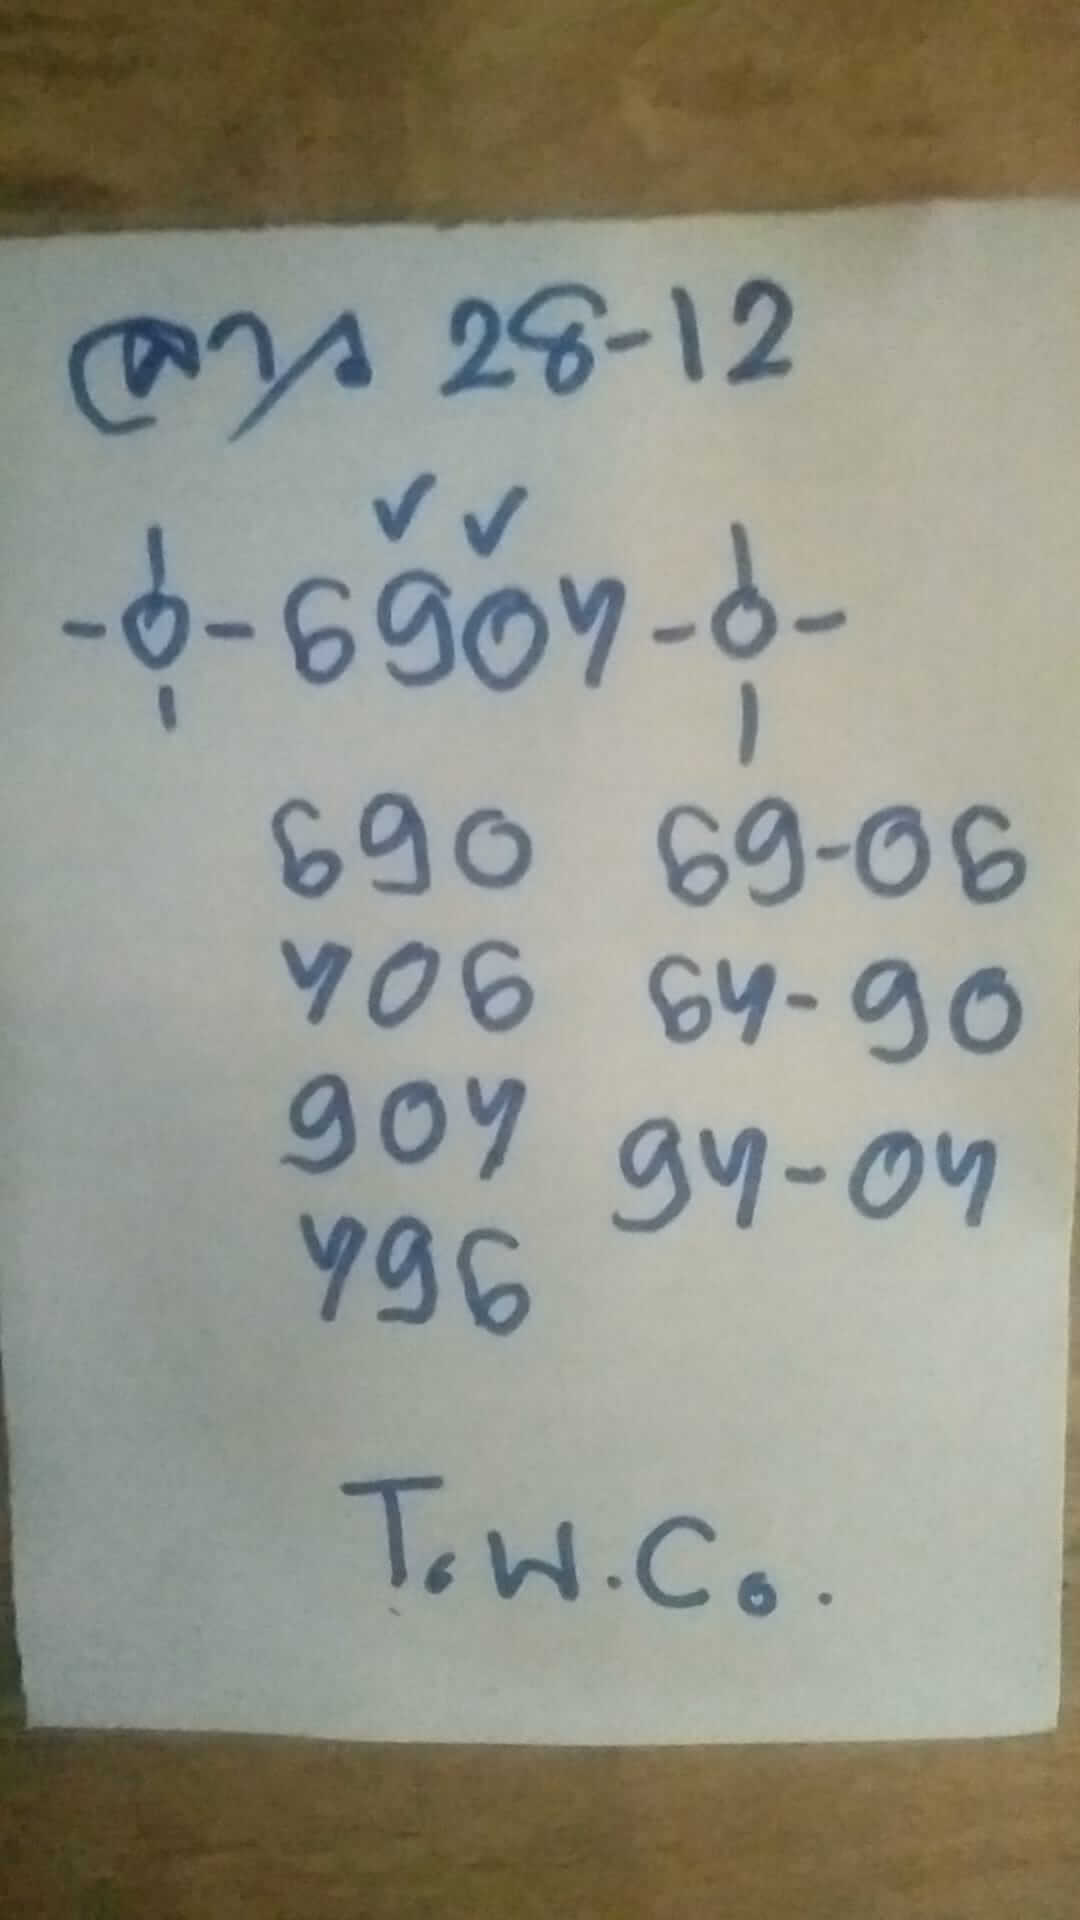 28-12
-0- 6904 -0-
690 69-06
406 64-90
904 94-04
496
T.W.C..